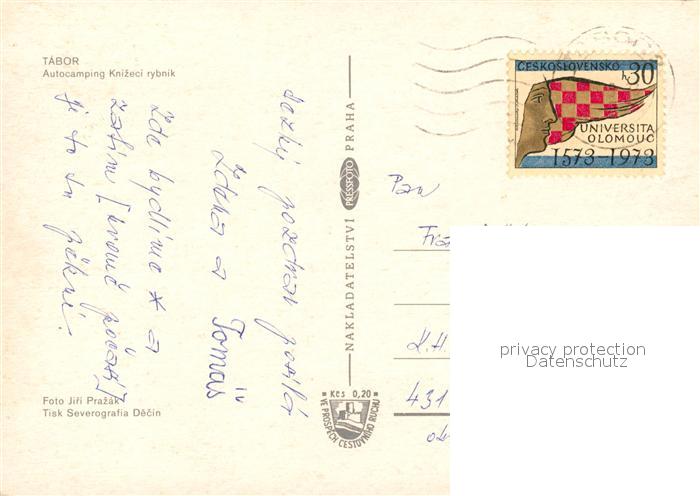 TÁBOR
Autocamping Knížecí rybník
Zde bydlíme * a
zatím [kromě počasí]
je to tu pěkné.
Hezký pozdrav posílá
Zdena a Tomáš
IV
Foto Jiří Pražák
Tisk Severografia Děčín
NAKLADATELSTVÍ PRESSFOTO PRAHA
Kčs 0,20
VE PROSPĚCH CESTOVNÍHO RUCHU
ČESKOSLOVENSKO
h 30
UNIVERSITA
OLOMOUC
1573-1973
Pan
K.H.
431
privacy protection
Datenschutz